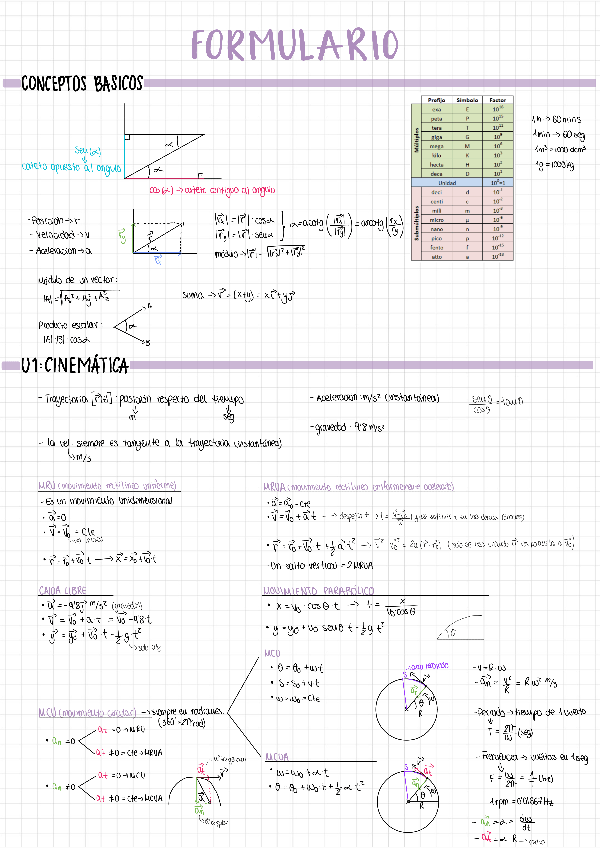 FORMULARIO
CONCEPTOS BASICOS
sen(α)
cateto opuesto al angulo
α
α
r
cos(α) → cateto contiguo al angulo
Prefijo Símbolo Factor
Múltiplos
exa E 10^18
peta P 10^15
tera T 10^12
giga G 10^9
mega M 10^6
kilo K 10^3
hecto H 10^2
deca D 10^1
Unidad 10^0=1
Submúltiplos
deci d 10^-1
centi c 10^-2
mili m 10^-3
micro μ 10^-6
nano n 10^-9
pico p 10^-12
fento f 10^-15
atto a 10^-18
1h → 60 mins
1min → 60 seg
1m³ = 1000 dcm³
- Posicion → r
- Velocidad → v
- Aceleracion → a
|rx| = |r| · cos α
|ry| = |r| · sen α
modulo → |r| = √|rx|²+|ry|²
Modulo de un vector:
|A| = √Ax²+Ay²+Az²
suma → r = (x+y) = xi+yj
Producto escalar:
|A|·|B|·cos α
A
α
B
U1: CINEMÁTICA
- Trayectoria [r(t)]: posición respecto del tiempo
m
seg
- La vel. siempre es tangente a la trayectoria (instantánea)
m/s
- Aceleracion: m/s² (instantánea)
- gravedad: 9'8 m/s²
sen θ / cos θ = tan θ
MRU (movimiento rectilíneo uniforme)
- Es un movimiento unidimensional
• a = 0
• v = v0 = Cte
• r = r0 + v0 t → x = x0 + v0 t
MRUA (movimiento rectilíneo uniformemente acelerado)
• a = a0 = cte
• v = v0 + a t
• r = r0 + v0 t + ½ a t²
- Un salto vertical = 2 MRUA
CAIDA LIBRE
• a = -9'8j m/s² (gravedad)
• v = v0 + a t = v0 - 9'8·t
• y = y0 + v0·t - ½ g t²
MOVIMIENTO PARABÓLICO
• x = v0 · cos θ t → t = x / v0·cos θ
• y = y0 + v0 sen θ t - ½ g t²
θ
MCU (movimiento circular) → siempre en radianes
(360° = 2π rad)
• an = 0
at = 0 → MRU
at ≠ 0 = cte → MRUA
• an ≠ 0
at = 0 → MCU
at ≠ 0 = cte → MCUA
MCU
• θ = θ0 + w·t
• S = S0 + v·t
• w = w0 = Cte
MCUA
• w = w0 + α t
• θ = θ0 + w0·t + ½ α t²
S
θ
R
S
θ
R
- v = R·w
- an = v²/R = R w² m/s
- Periodo → tiempo de 1 vuelta
T = 2π/w (seg)
- Frecuencia → vueltas en 1 seg
f = w/2π = 1/T (Hz)